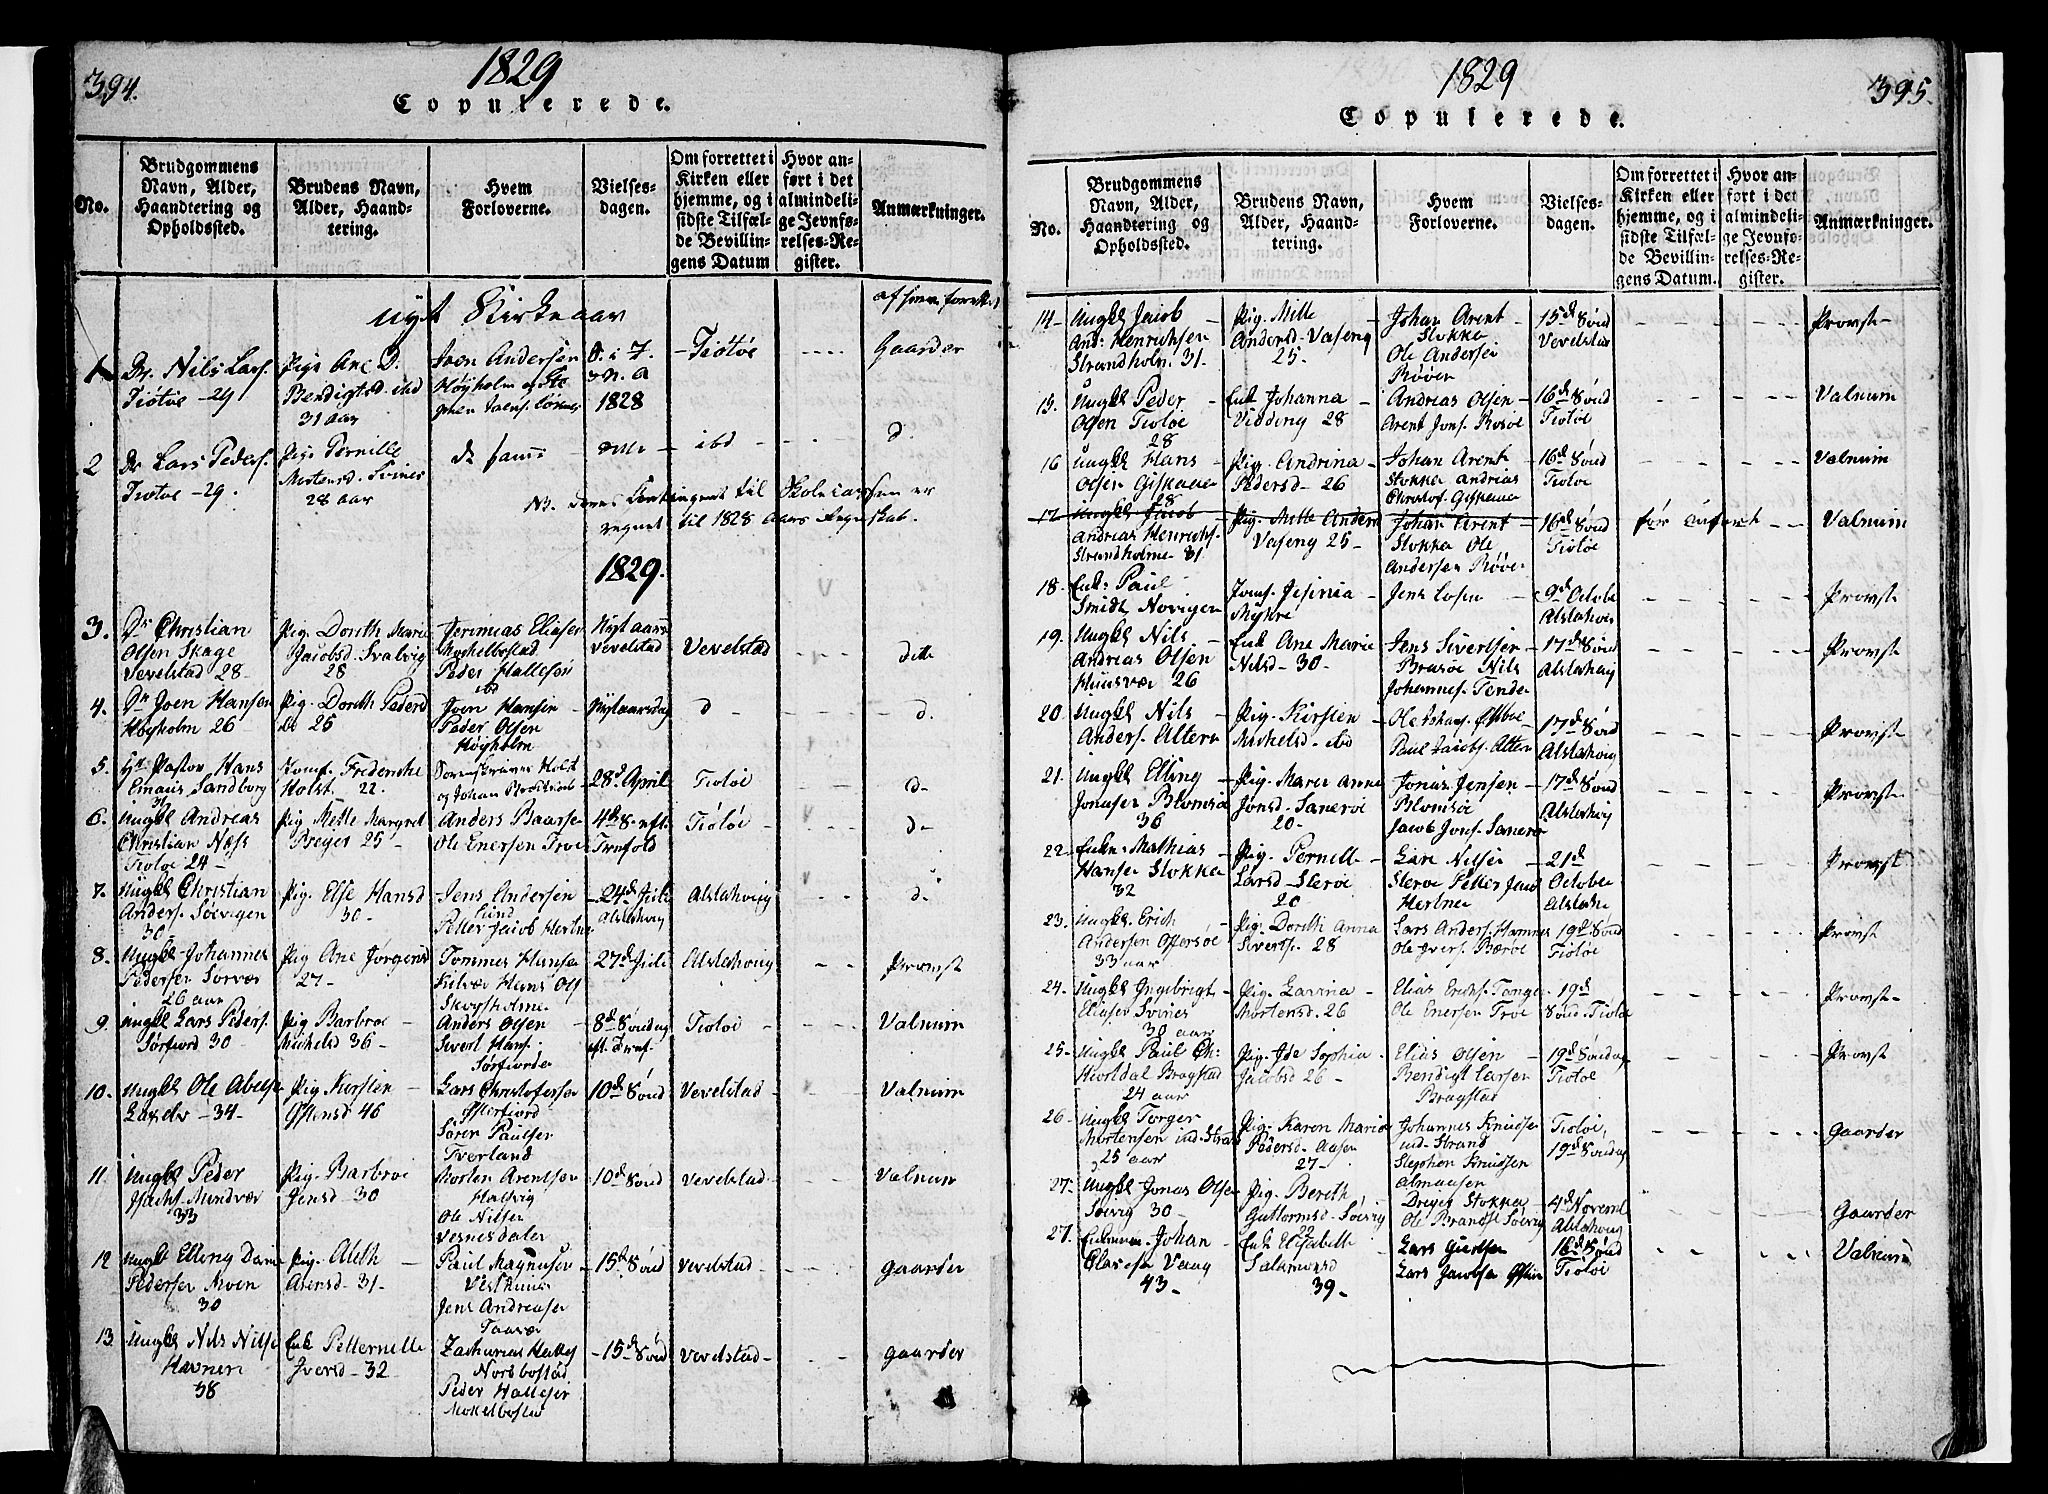 394.
1829
Copulerede.
No.
Brudgommens Navn, Alder, Haandtering og Opholdssted.
Brudens Navn, Alder, Haandtering.
Hvem Forloverne.
Vielsesdagen.
Om forrettet i Kirken eller hjemme, og i sidste Tilfælde Bevillingens Datum
Hvor anført i det almindelige Jevnførelses-Register.
Anmærkninger.
nyt Kirkeaar
1 Nils Lars. Tiötöe - 29
Pige Ane D. Bendigtsd ibd 31 aar
Joen Andersen Höyholm
1828
Tiötöe
Gaarder
2 Lars Peders. Tiotoe - 29.
Pige Pernille Mortensd. Svines 28 aar
de samme
ibd
d.
NB. til
regnet til 1828 Aars Regnskab.
1829.
3. Christian Olsen Skage Vevelstad 28
Pig. Dorith Marie Jacobsd. Svalvig 28
Jeremias Eliasen Mykelbostad Peder Hallesen ibd
Nyt aars Vevelstad
Vevelstad
ditto
4. Joen Hansen Höyholm 26
Pig. Dorith Pedersd De 25
Joen Hansen Peder Olsen Höyholm
Nytaarsdag
d
d.
5. Hr Pastor Hans Emaus Sandborg 31
Jomf. Frederiche Holst. 22.
Sorenskriver Holst og Johan
28d April
Tiotöe
d.
6. Ungkl Andreas Christian Næss Tiotoe 24
Pig Mette Margret Breyer 25
Anders Baarsen Ole Enersen Troe
4de S. eft. Trefold
Tiötöe
d
7. Ungkl Christian Anders. Söevigen 30
Pig. Else Hansd 30
Jens Andersen Lund Petter Jacob Hertne
24d Juli Alstahoug
Alstahoug
d.
8. Ungkl Johannes Pedersen Sorvær 26 aar
Pig Ane Jörgensd 27
Tommes Hansen Hans Ols Skogsholme
27d Juli
Alstahoug
Provst
9. Ungkl Lars Peders. Sörfiord 30
Pig Barbroe Mickelsd 36
Anders Olsen Sivert Hans. Sörfiorde
8d Söndag eft. Tref.
Tiotöe
Valnum
10. Ungkl Ole Abelsen - 34
Pig Kirsten Östensd 46
Lars Christofersen Österfiord Sören Paulsen Tverland
10d Sönd
Vevelstad
Valnum
11 Ungkl Peder Isachs. Mindvær 33
Pig. Barbroe Jensd - 30
Morten Arentsen Halsvig Ole Nilsen Vesnesdalen
10d Sönd
Vevelstad
Valnum
12 Ungkl Elling Daniel Pedersen Moen 30
Pig. Aleth Arensd - 31
Paul Magnusen Vesthuus Jens Andreasen Taavær
15de Sönd
Vevelstad
gaarder
13. Ungkl Nils Nilsen Havnen 38
Enk Petternille Iversd - 32
Zacharias Halles Nordbostad Peder Hallesen Mokelbostad
15de Sönd
Vevelstad
gaarder
1829
395.
Copulerede.
No.
Brudgommens Navn, Alder, Haandtering og Opholdssted.
Brudens Navn, Alder, Haandtering.
Hvem Forloverne.
Vielsesdagen.
Om forrettet i Kirken eller hjemme, og i sidste Tilfælde Bevillingens Datum.
Hvor anført i det almindelige Jevnførelses-Register.
Anmærkninger.
14 Ungkl Jacob And: Henrichsen Strandholm. 31.
Pig. Mitte Andersd. Vaseng 25
Johan Arent Stokka Ole Andersen Rööen
15d Sönd Vevelstad
Provst
15. Ungkl Peder Olsen Tiotöe 28
Enk Johanna Vidding 28
Andreas Olsen Arent Jons. Rosöe
16d Sönd Tiotöe
Valnum
16 Ungkl Hans Olsen Giskaaen 28
Pig. Andrina Pedersd 26
Johan Arent Stokka Andrias Christof. Giskaaen
16d Sönd Tiotöe
Valnum
17. Ungkl Jacob Andreas Henrichs. Strandholme 31
Pig. Mitte Andersd Vaseng 25
Johan Arent Stokka Ole Andersen Rööen
16d Sönd Tiotöe
för anfört
Valnum
18. Enk: Paul Smidt Novigen
Jomf. Jesinia Mykre
Jens
9d Octobe Alstahoug
Provst
19. Ungkl Nils Andreas Olsen Huusvær 26
Enk Ane Marie Nilsd - 30
Jens Sivertsen Brasöe Nils Johannes. Tendes
17d Sönd Alstahoug
Provst
20. Ungkl Nils Anders. Altern
Pig. Kirsten Mickelsd. ibd
Ole Johans. Östboe Paul Jacobs. Alten
17d Sönd Alstahoug
Provst
21. Ungkl Elling Jonasen Blomsöe 36
Pig. Maren Anne Jonsd. Saneröe 20
Jonas Jensen Blomsöe Jacob Jons. Saneroe
17d Sönd Alstahoug
Provst
22. Enkm. Mathias Hansen Stokka 32
Pig. Pernille Larsd. Steroe 20
Lars Nilsen Steroe Petter Jacob Hertnes
21d October Alstahoug
Provst
23. Ungkl Erich Andersen Offersöe 33 aar
Pig. Dorith Anna Sivertsd. 28
Lars Anders. Hamnes Ole Ivers. Bæröe
19d Sönd Tiotöe
Provst
24. Ungkl Ingebrigt Eliasen Svines 30 aar
Pig. Lavina Mortensd. 26
Elias Erichs. Tange Ole Enersen Troe
19d Sönd. Tiotöe
Provst
25. Ungkl Paul Ch: Hiortdal Brogstad 24 aar
Pig. Ide Sophia Jacobsd 26
Elias Olsen Bendigt Larsen Brogstad
19d Söndag Tiotöe
Provst
26. Ungkl Torger Mortensen ud. Strand 25 aar
Pig. Karen Maria Pedersd. Aasen 27
Johannes Knudsen ud. Strand Stephen Knudsen Almaasen
Tiotöe, 19d Söndag
gaarder
27. Ungkl Jonas Olsen Söevig 30
Pig. Bereth Guttormsd. Söevig 22
Dreyer Stokka Ole Brandt Söevig
4d Novembr Alstahoug
Gaarder
27. Enkem. Johan Olavesen Vaag 43
Enk Elisabeth Salamonsd 39
Lars Lars Jacobsen
16d Sönd Tiotöe
Valnum